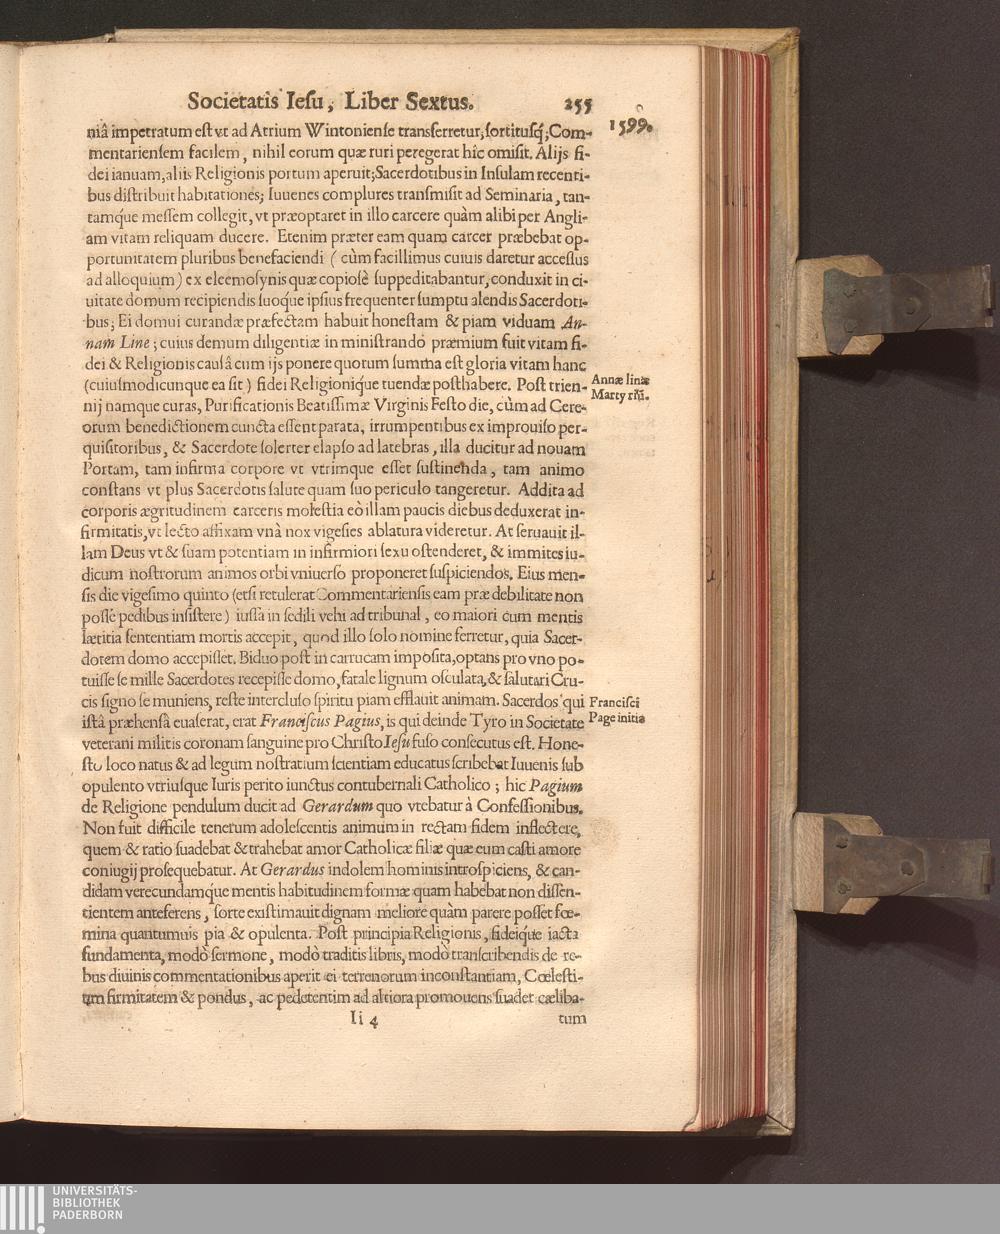 Societatis Iesu, Liber Sextus. 255
1599.
niâ impetratum est vt ad Atrium Wintoniense transferretur, sortitusq́; Com-
mentariensem facilem, nihil eorum quæ ruri peregerat hîc omisit. Alijs fi-
dei ianuam, aliis Religionis portum aperuit; Sacerdotibus in Insulam recenti-
bus distribuit habitationes; Iuuenes complures transmisit ad Seminaria, tan-
tamq́ue messem collegit, vt præoptaret in illo carcere quàm alibi per Angli-
am vitam reliquam ducere. Etenim præter eam quam carcer præbebat op-
portunitatem pluribus benefaciendi (cùm facillimus cuiuis daretur accessus
ad alloquium) ex eleemosynis quæ copiosè suppeditabantur, conduxit in ci-
uitate domum recipiendis suoq́ue ipsius frequenter sumptu alendis Sacerdoti-
bus; Ei domui curandæ præfectam habuit honestam & piam viduam An-
nam Line; cuius demum diligentiæ in ministrando præmium fuit vitam fi-
dei & Religionis causâ cum ijs ponere quorum summa est gloria vitam hanc
(cuiusmodicunque ea sit) fidei Religioniq́ue tuendæ posthabere. Post trien-
Annæ linæ
Martyriũ.
nij namque curas, Purificationis Beatissimæ Virginis Festo die, cùm ad Cere-
orum benedictionem cuncta essent parata, irrumpentibus ex improuiso per-
quisitoribus, & Sacerdote solerter elapso ad latebras, illa ducitur ad nouam
Portam, tam infirma corpore vt vtrimque esset sustinenda, tam animo
constans vt plus Sacerdotis salute quam suo periculo tangeretur. Addita ad
corporis ægritudinem carceris molestia eò illam paucis diebus deduxerat in-
firmitatis, vt lecto affixam vnà nox vigesies ablatura videretur. At seruauit il-
lam Deus vt & suam potentiam in infirmiori sexu ostenderet, & immites iu-
dicum nostrorum animos orbi vniuerso proponeret suspiciendos. Eius men-
sis die vigesimo quinto (etsi retulerat Commentariensis eam præ debilitate non
posse pedibus insistere) iussa in sedili vehi ad tribunal, eo maiori cum mentis
lætitia sententiam mortis accepit, quod illo solo nomine ferretur, quia Sacer-
dotem domo accepisset. Biduo post in carrucam imposita, optans pro vno po-
tuisse se mille Sacerdotes recepisse domo, fatale lignum osculata, & salutari Cru-
cis signo se muniens, reste intercluso spiritu piam efflauit animam. Sacerdos qui
Francisci
Page initia
istâ præhensâ euaserat, erat Franciscus Pagius, is qui deinde Tyro in Societate
veterani militis coronam sanguine pro Christo Iesu fuso consecutus est. Hone-
sto loco natus & ad legum nostratium scientiam educatus scribebat Iuuenis sub
opulento vtriusque Iuris perito iunctus contubernali Catholico; hic Pagium
de Religione pendulum ducit ad Gerardum quo vtebatur à Confessionibus.
Non fuit difficile tenerum adolescentis animum in rectam fidem inflectere,
quem & ratio suadebat & trahebat amor Catholicæ filiæ quæ eum casti amore
coniugij prosequebatur. At Gerardus indolem hominis introspiciens, & can-
didam verecundamq́ue mentis habitudinem formæ quam habebat non dissen-
tientem anteferens, sorte existimauit dignam meliore quàm parere posset fœ-
mina quantumuis pia & opulenta. Post principia Religionis, fideiq́ue iacta
fundamenta, modò sermone, modò traditis libris, modò transcribendis de re-
bus diuinis commentationibus aperit ei terrenorum inconstantiam, Cœlesti-
um firmitatem & pondus, ac pedetentim ad altiora promouens suadet cæliba-
Ii 4 tum
UNIVERSITÄTS-
BIBLIOTHEK
PADERBORN